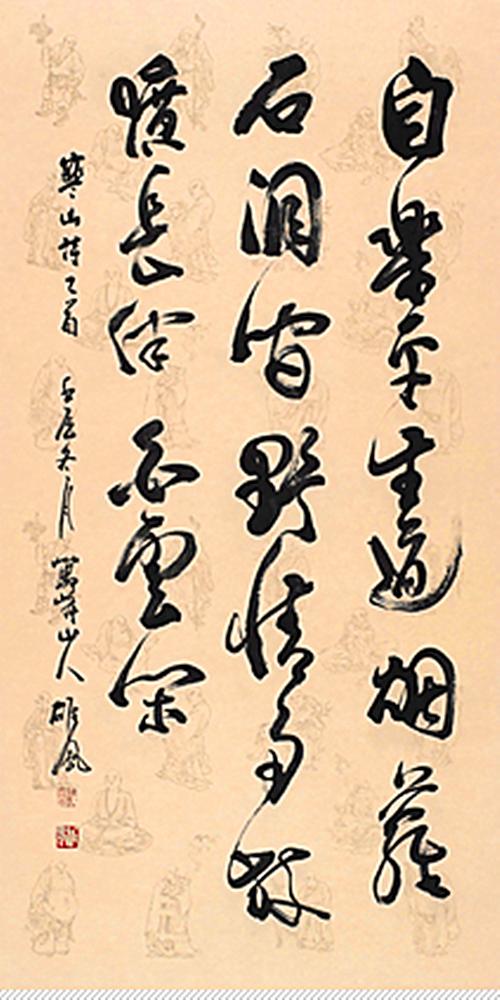 自樂平生道烟蘿
石洞間野情多放
曠長伴白雲閑
寒山詩乙首 壬辰冬月 萬峰山人 雄風